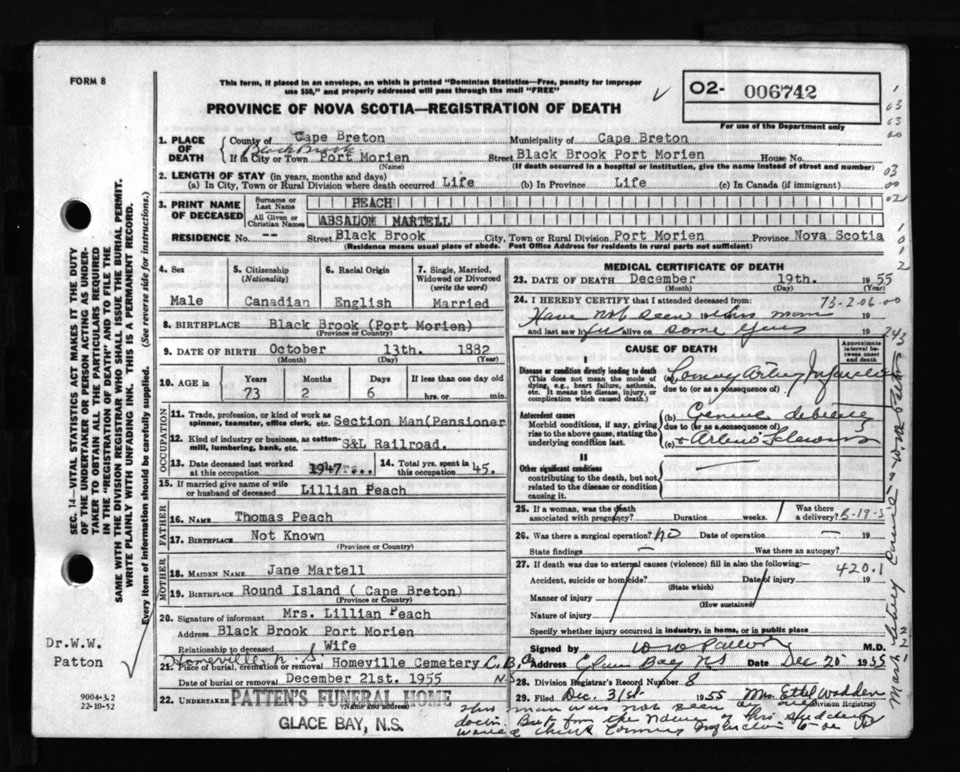 FORM 8
This form, if placed in an envelope, on which is printed "Dominion Statistics—Free, penalty for improper
use $50," and properly addressed will pass through the mail "FREE"
PROVINCE OF NOVA SCOTIA—REGISTRATION OF DEATH
O2- 006742
For use of the Department only
SEC. 14—VITAL STATISTICS ACT MAKES IT THE DUTY
OF THE UNDERTAKER OR PERSON ACTING AS UNDER-
TAKER TO OBTAIN ALL THE PARTICULARS REQUIRED
IN THE "REGISTRATION OF DEATH" AND TO FILE THE
SAME WITH THE DIVISION REGISTRAR WHO SHALL ISSUE THE BURIAL PERMIT.
WRITE PLAINLY WITH UNFADING INK. THIS IS A PERMANENT RECORD.
Every item of information should be carefully supplied. (See reverse side for instructions.)
1. PLACE OF DEATH
County of Cape Breton Municipality of Cape Breton
Black Brook
If in City or Town Port Morien Street Black Brook Port Morien House No.
(Name) (If death occurred in a hospital or institution, give the name instead of street and number)
2. LENGTH OF STAY (in years, months and days)
(a) In City, Town or Rural Division where death occurred Life (b) In Province Life (c) In Canada (if immigrant)
3. PRINT NAME OF DECEASED
Surname or Last Name PEACH
All Given or Christian Names ABSALOM MARTELL
RESIDENCE No. -- Street Black Brook City, Town or Rural Division Port Morien Province Nova Scotia
(Residence means usual place of abode. Post Office Address for residents in rural parts not sufficient)
4. Sex 5. Citizenship (Nationality) 6. Racial Origin 7. Single, Married, Widowed or Divorced (write the word)
Male Canadian English Married
8. BIRTHPLACE Black Brook (Port Morien)
(Province or Country)
9. DATE OF BIRTH October 13th. 1882
(Month) (Day) (Year)
10. AGE in Years Months Days If less than one day old
73 2 6 hrs. or min.
OCCUPATION
11. Trade, profession, or kind of work as spinner, teamster, office clerk, etc. Section Man(Pensioner
12. Kind of industry or business, as cotton-mill, lumbering, bank, etc. S&L Railroad.
13. Date deceased last worked at this occupation 1947 14. Total yrs. spent in this occupation 45.
15. If married give name of wife or husband of deceased Lillian Peach
FATHER
16. NAME Thomas Peach
17. BIRTHPLACE Not Known
(Province or Country)
MOTHER
18. MAIDEN NAME Jane Martell
19. BIRTHPLACE Round Island ( Cape Breton)
(Province or Country)
20. Signature of informant Mrs. Lillian Peach
Address Black Brook Port Morien
Relationship to deceased Wife
Homeville, N.S.
21. Place of burial, cremation or removal Homeville Cemetery C.B.Co
Date of burial or removal December 21st. 1955 N.S
22. UNDERTAKER PATTEN'S FUNERAL HOME
(Name and address)
GLACE BAY, N.S.
Dr.W.W.
Patton
9004-3.2
22-10-52
MEDICAL CERTIFICATE OF DEATH
23. DATE OF DEATH December 19th. 1955
(Month) (Day) (Year)
24. I HEREBY CERTIFY that I attended deceased from: 73-2.06.00
Have not seen this man 19
and last saw h alive on some years 19
243
CAUSE OF DEATH
Approximate interval between onset and death
I
Disease or condition directly leading to death
(This does not mean the mode of dying, e.g., heart failure, asthenia, etc. It means the disease, injury, or complication which caused death.)
(a)
due to (or as a consequence of)
Antecedent causes
Morbid conditions, if any, giving rise to the above cause, stating the underlying condition last.
(b)
due to (or as a consequence of)
(c)
II
Other significant conditions
contributing to the death, but not related to the disease or condition causing it.
25. If a woman, was the death associated with pregnancy? Duration weeks. Was there a delivery?
26. Was there a surgical operation? no Date of operation — 19
State findings — Was there an autopsy?
27. If death was due to external causes (violence) fill in also the following:- 420.1
Accident, suicide or homicide? Date of injury 19
(State which)
Manner of injury
(How sustained)
Nature of injury
Specify whether injury occurred in industry, in home, or in public place
Signed by W W Patton M.D.
Address Glace Bay NS Date Dec 20 1955
28. Division Registrar's Record Number 8
29. Filed Dec. 31st 1955 Mrs Ethel Wadden
(Division Registrar)
This man was not seen by any
doctor. But from the nature of his sudden
would think Coronary Infarction to be